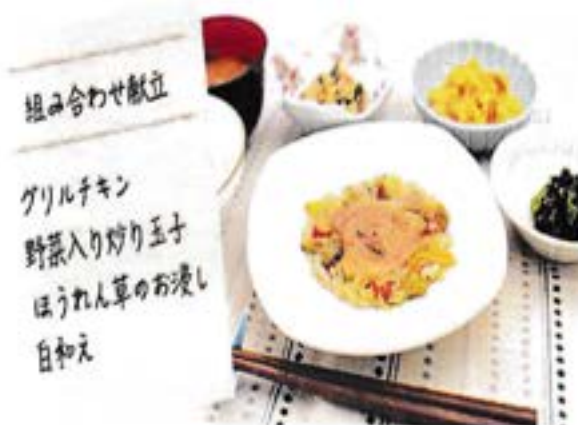 組み合わせ献立
グリルチキン
野菜入り炒り玉子
ほうれん草のお浸し
白和え